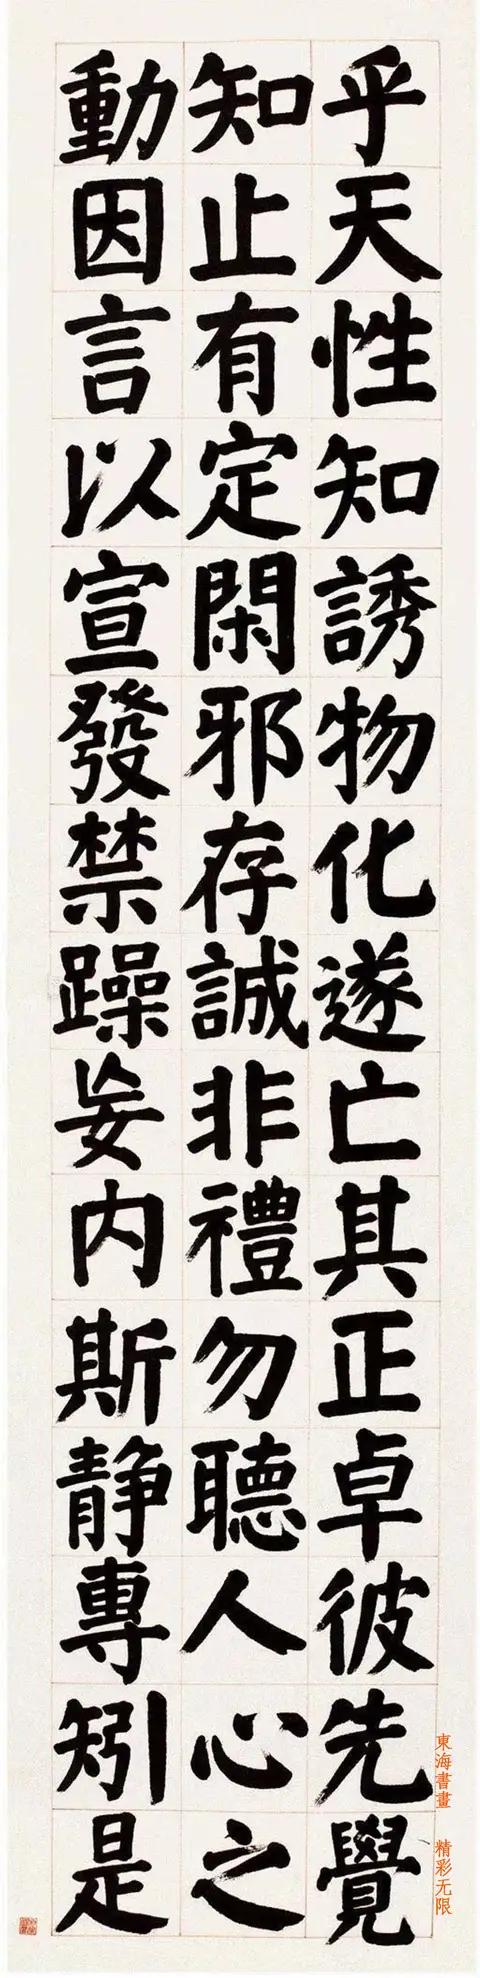 乎天性知誘物化遂亡其正卓彼先覺
知止有定閑邪存誠非禮勿聽人心之
動因言以宣發禁躁妄内斯静專矧是
東海書畫 精彩无限